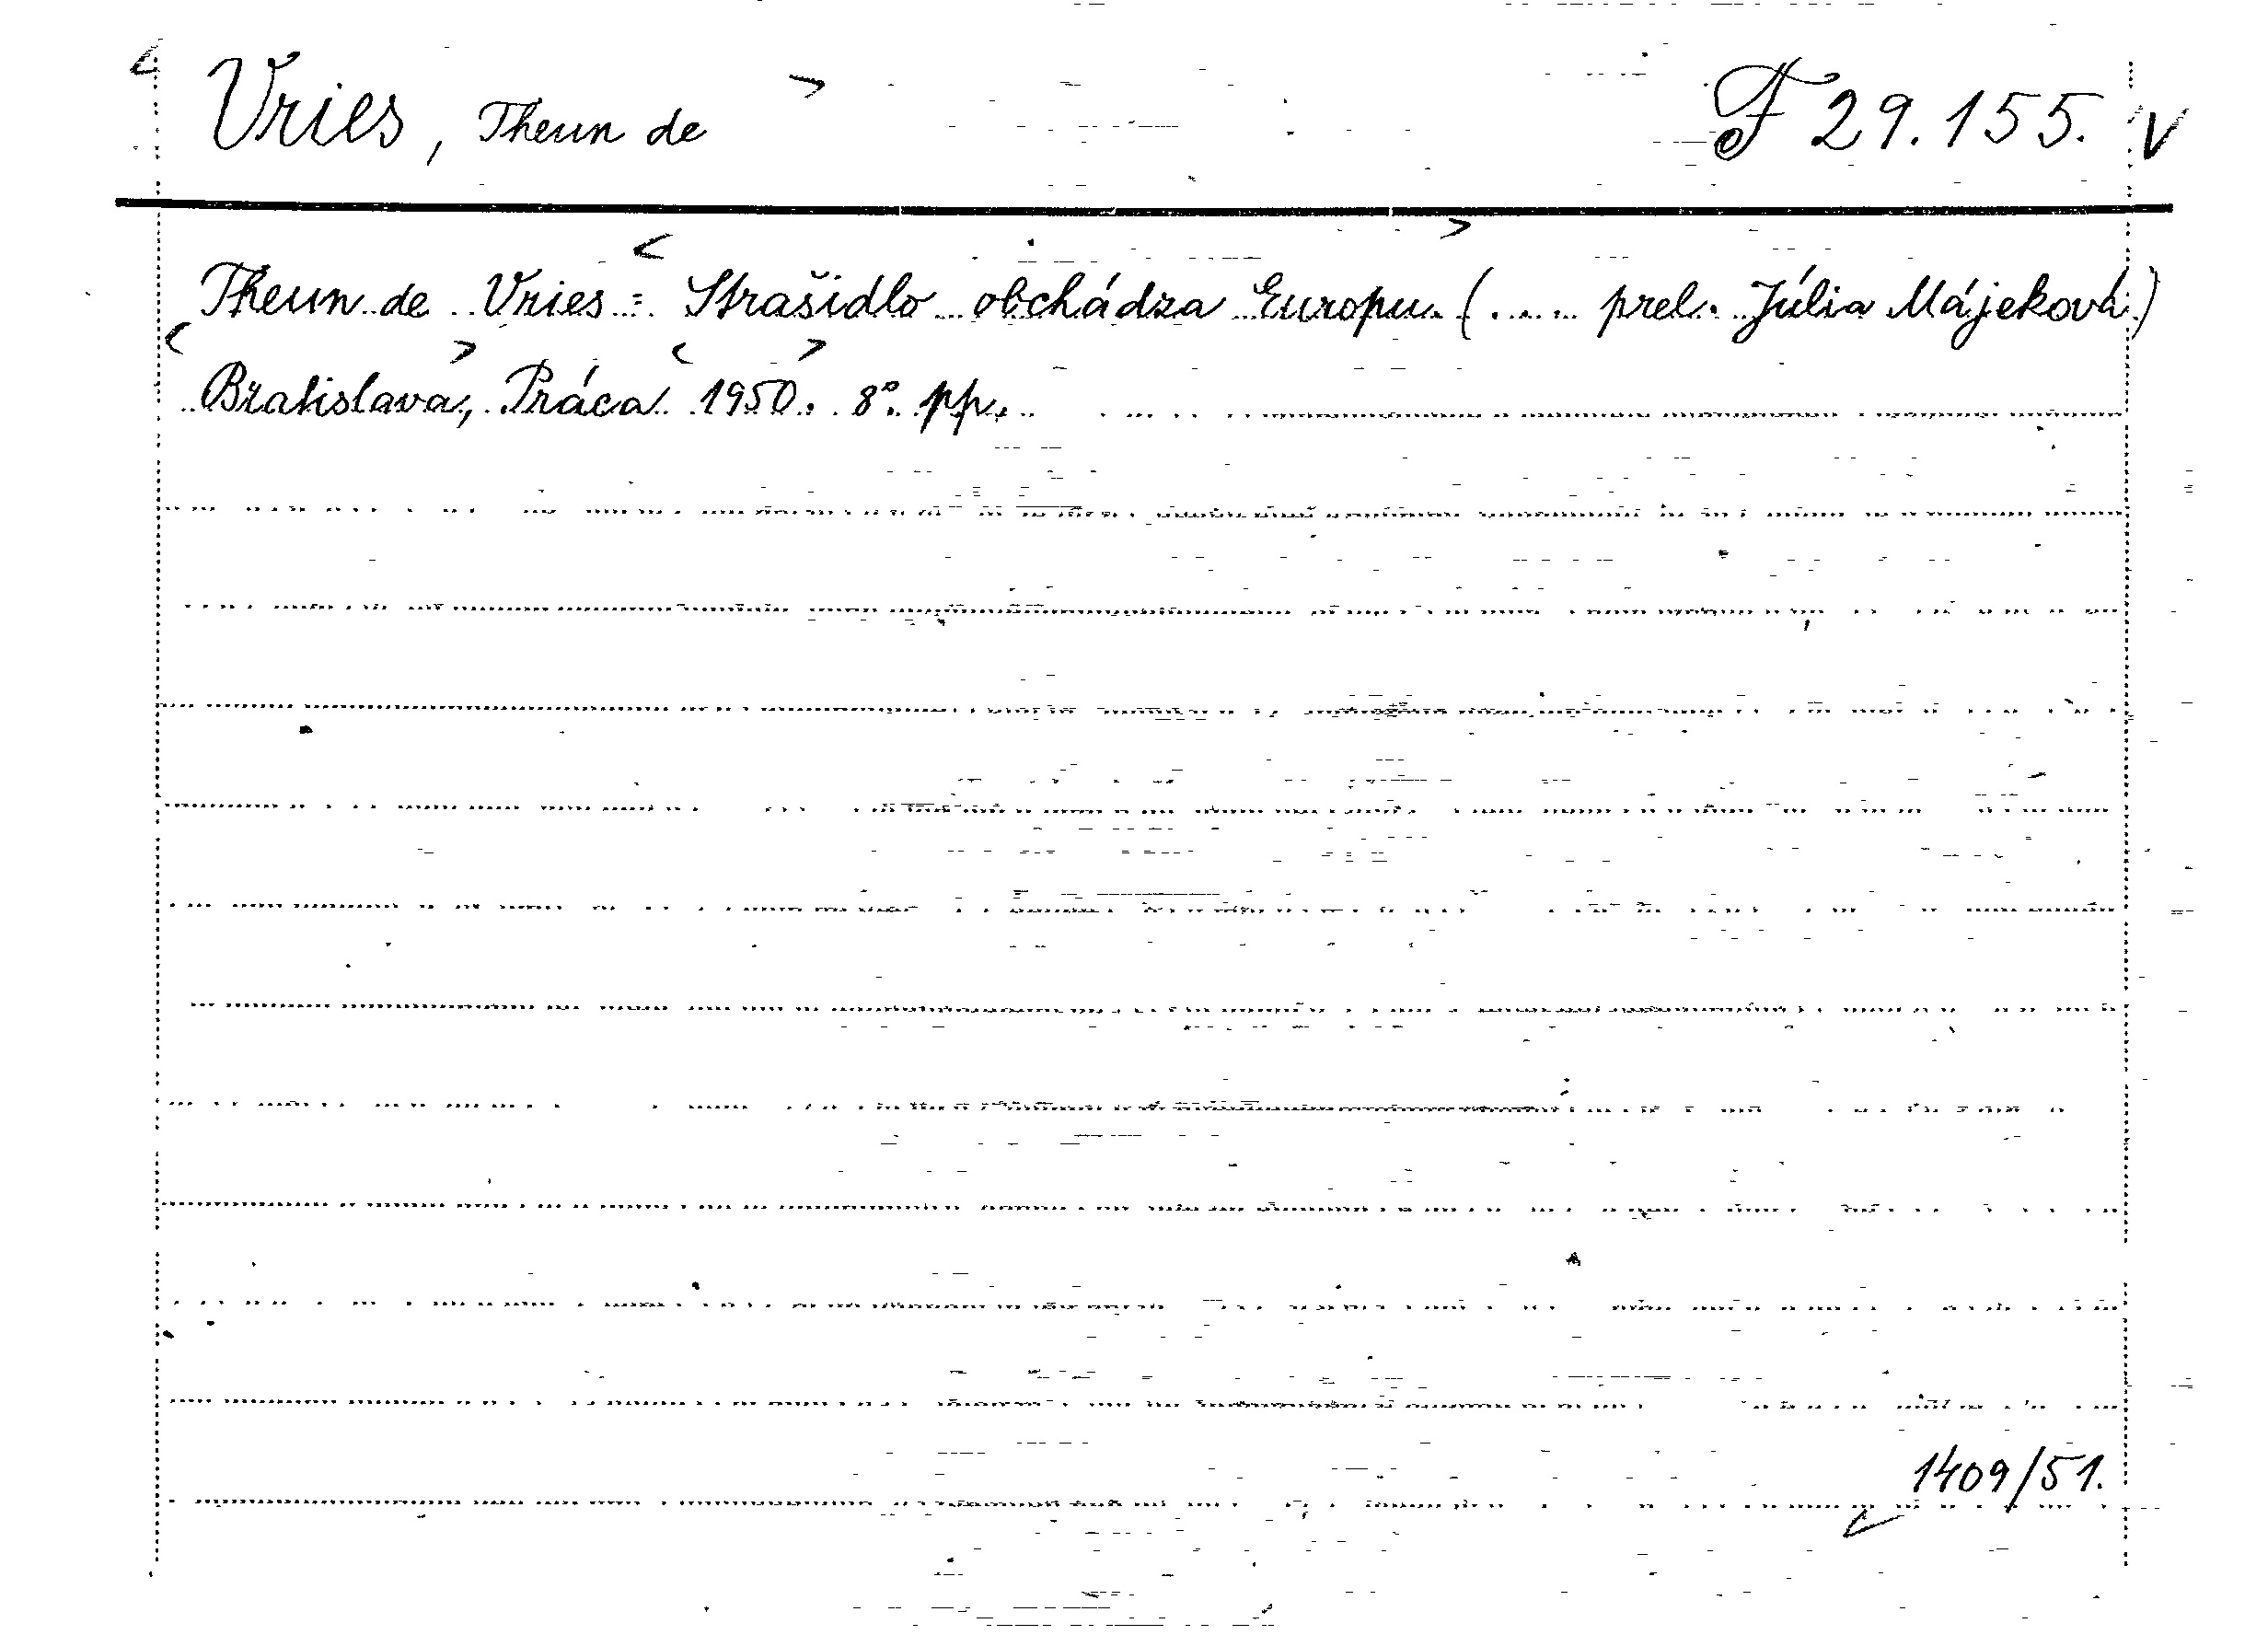 Vries, Theun de F 29.155. V
Theun de Vries: Strašidlo obchádza Europu. (.... prel. Júlia Májeková)
Bratislava, Práca 1950. 8°. pp.
1409/51.